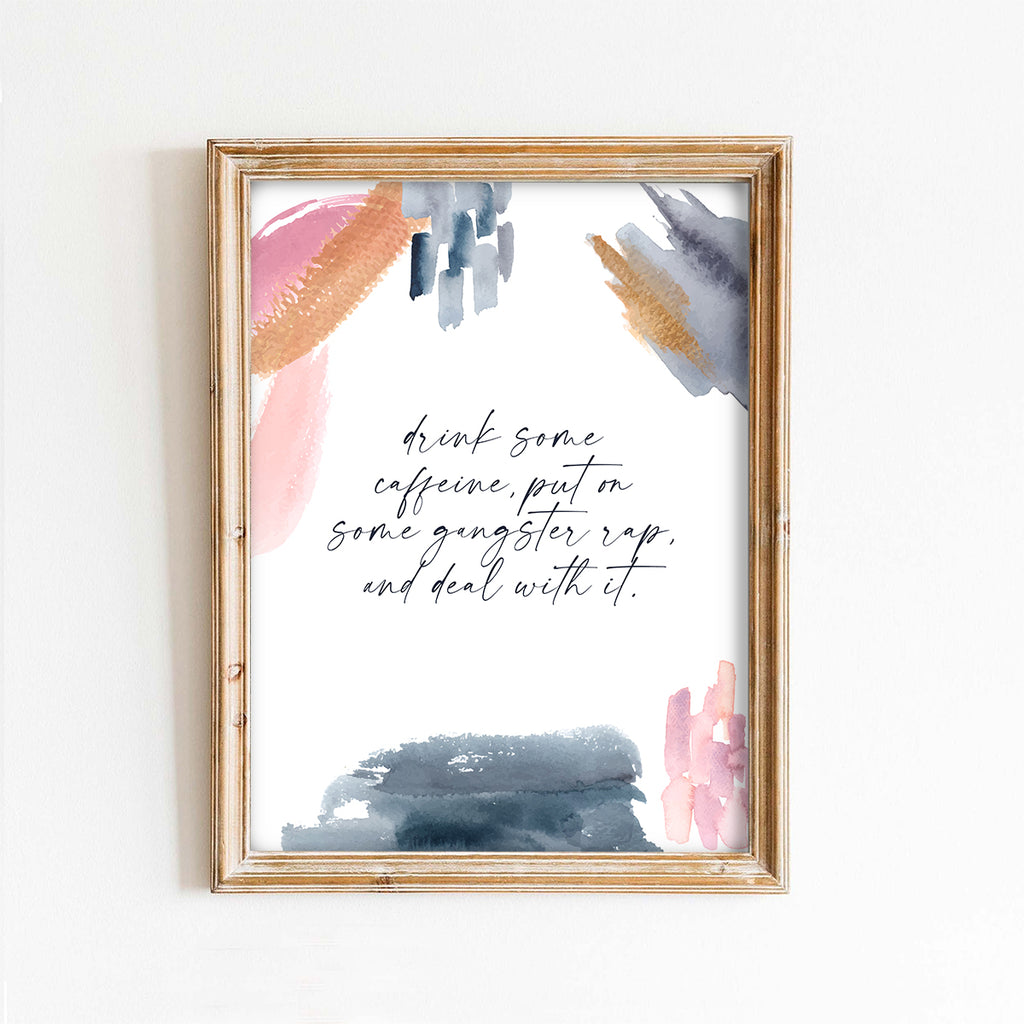 drink some
caffeine, put on
some gangster rap,
and deal with it.